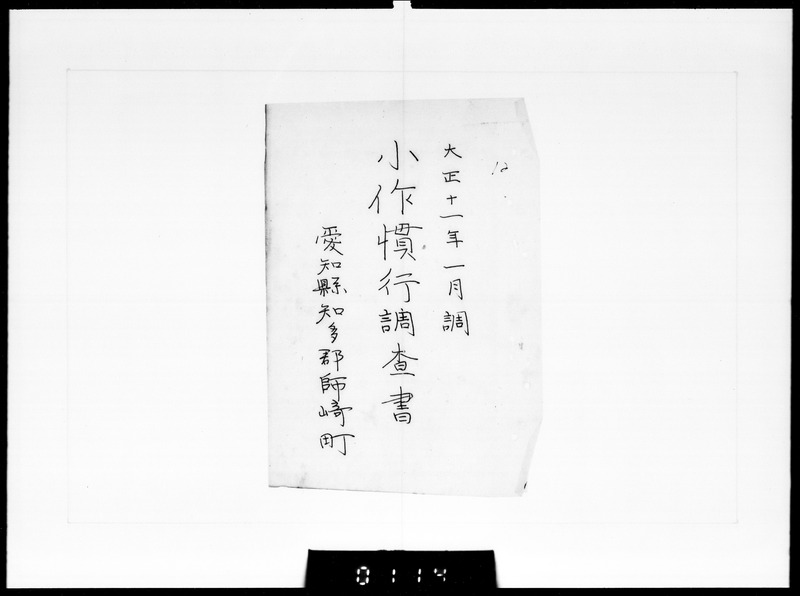 大正十一年一月調
小作慣行調査書
愛知縣知多郡師崎町
0114